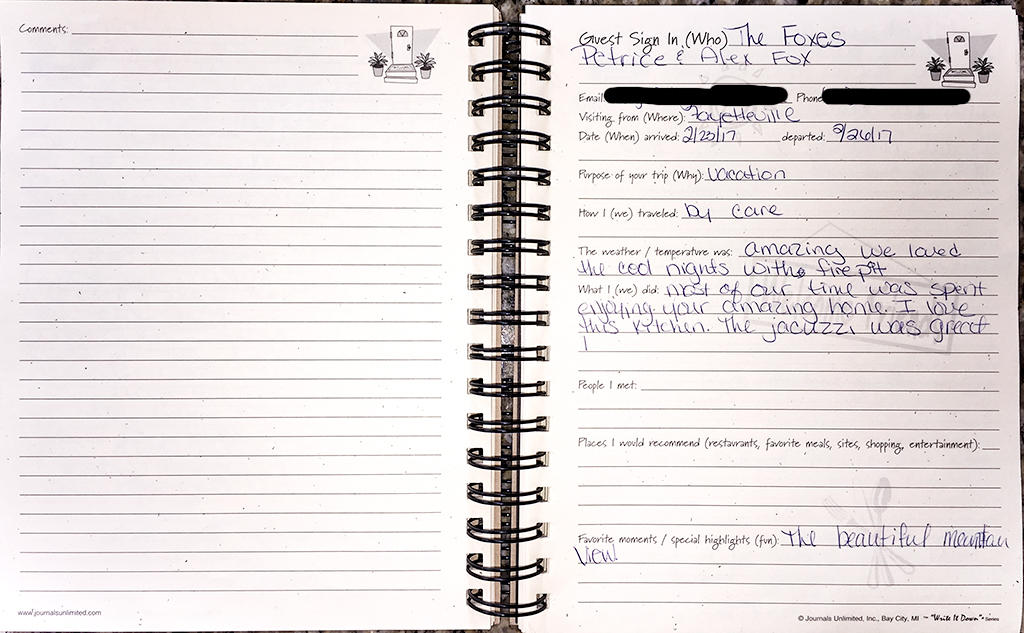 Comments:
www.journalsunlimited.com
Guest Sign In (Who) The Foxes
Petrice & Alex Fox
Email: Phone:
Visiting from (Where): Fayetteville
Date (When) arrived: 2/23/17 departed: 2/26/17
Purpose of your trip (Why): Vacation
How I (we) traveled: by care
The weather / temperature was: amazing we loved
the cool nights with firepit
What I (we) did: most of our time was spent
enjoying your amazing home. I love
this kitchen. The jacuzzi was great
!
People I met:
Places I would recommend (restaurants, favorite meals, sites, shopping, entertainment):
Favorite moments / special highlights (fun): The beautiful mountain
View
© Journals Unlimited, Inc., Bay City, MI ™ "Write It Down"® Series